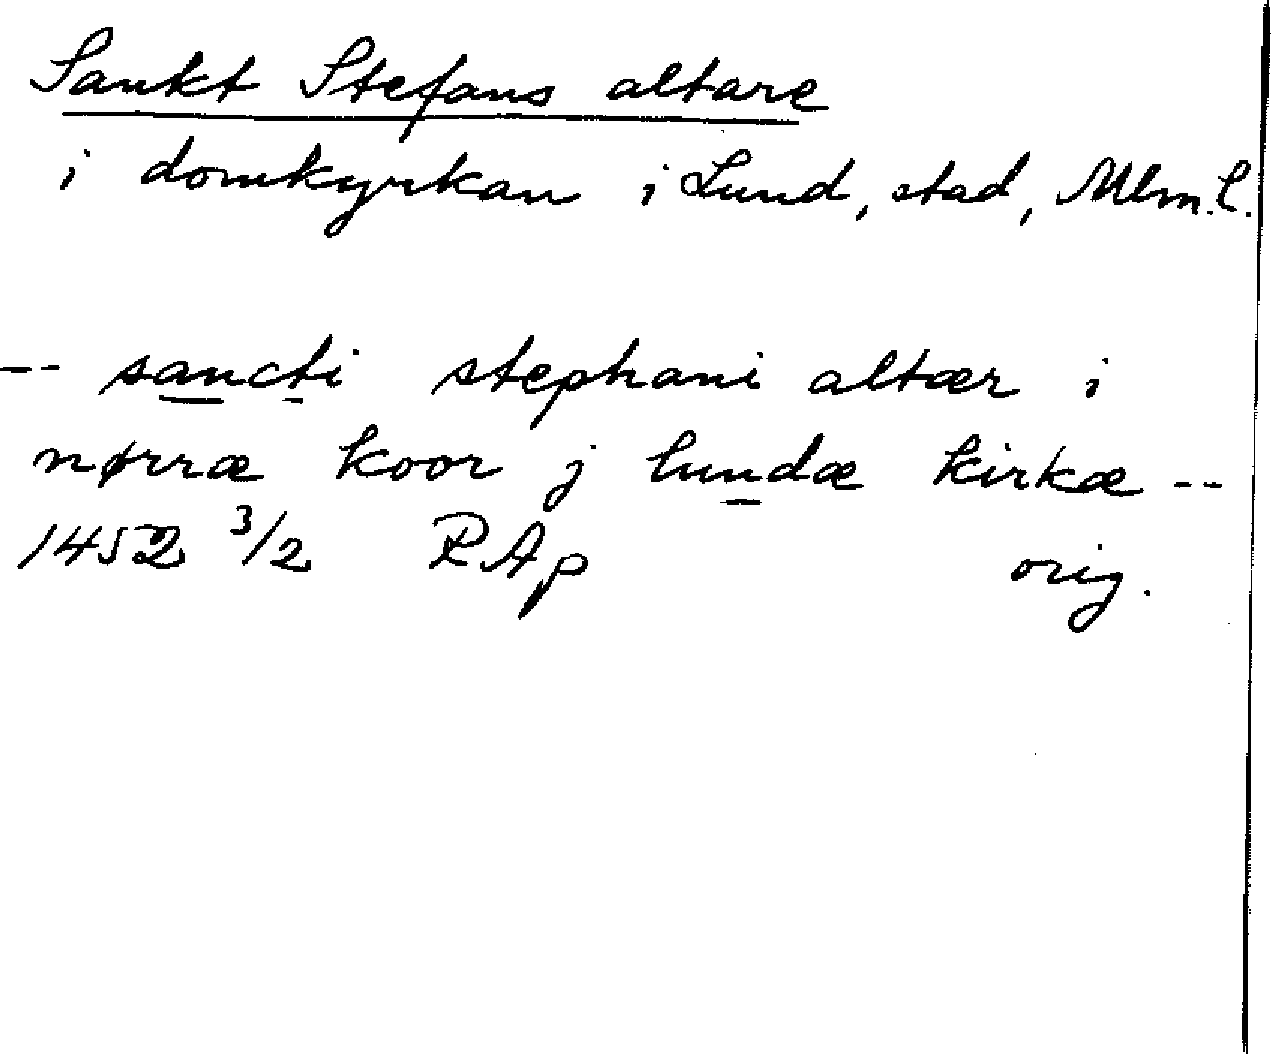 Sankt Stefans altare
i domkyrkan i Lund, stad, Mlm.l.
-- sancti stephani altær i
nørræ koor j lundæ kirkæ --
1452 3/2 RAp orig.